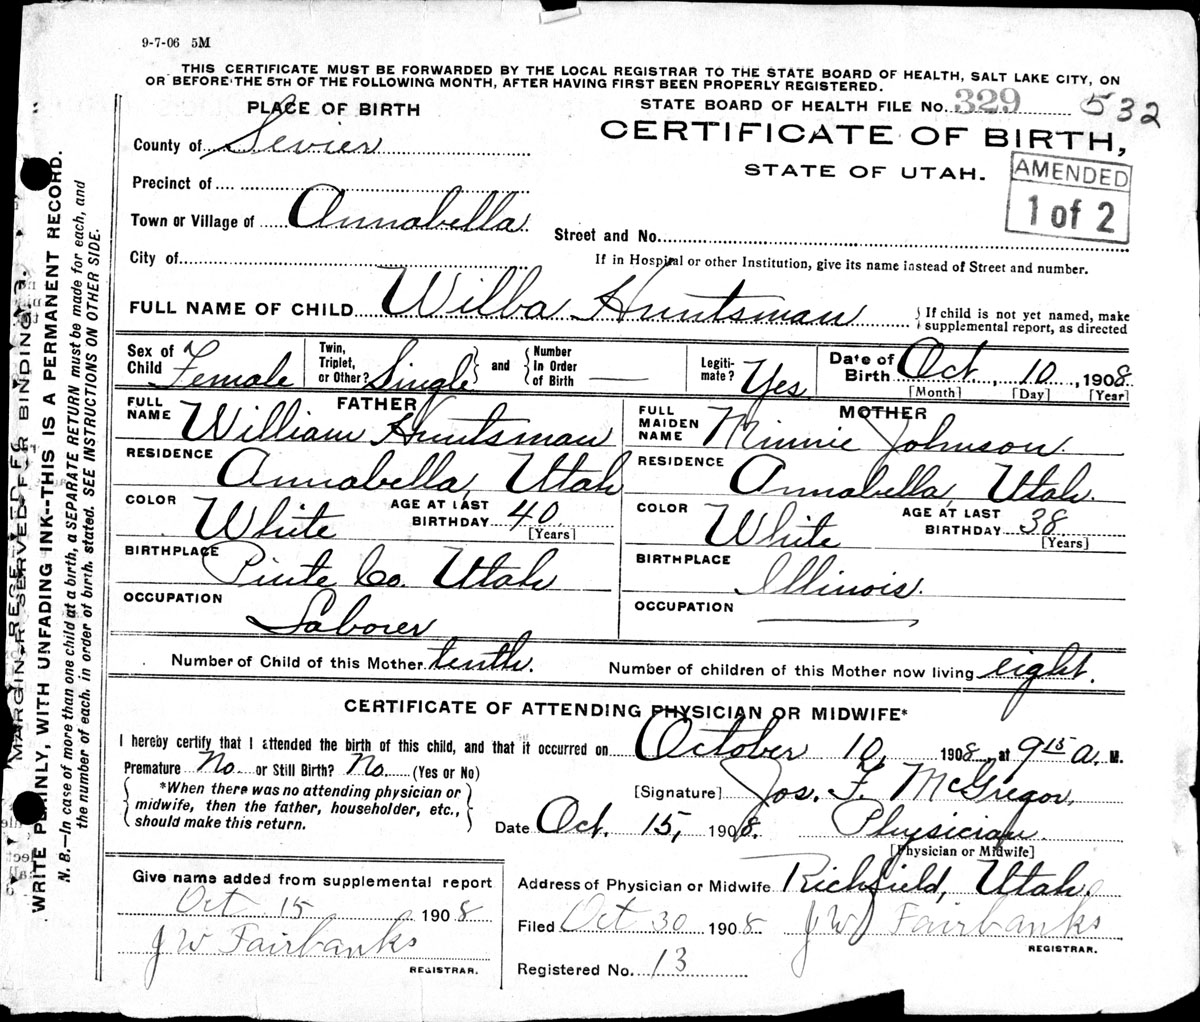 9-7-06 5M
THIS CERTIFICATE MUST BE FORWARDED BY THE LOCAL REGISTRAR TO THE STATE BOARD OF HEALTH, SALT LAKE CITY, ON
OR BEFORE THE 5TH OF THE FOLLOWING MONTH, AFTER HAVING FIRST BEEN PROPERLY REGISTERED.
PLACE OF BIRTH
STATE BOARD OF HEALTH FILE No. 329 532
CERTIFICATE OF BIRTH,
STATE OF UTAH.
AMENDED
1 of 2
County of Sevier
Precinct of
Town or Village of Annabella
Street and No.
City of
If in Hospital or other Institution, give its name instead of Street and number.
FULL NAME OF CHILD Wilba Huntsman
{ If child is not yet named, make
supplemental report, as directed
Sex of Child Female
Twin, Triplet, or Other? Single } and { Number In Order of Birth —
Legiti-mate? Yes
Date of Birth Oct. 10, 1908
[Month] [Day] [Year]
FATHER
FULL NAME William Huntsman
RESIDENCE Annabella, Utah
COLOR White
AGE AT LAST BIRTHDAY 40
[Years]
BIRTHPLACE Piute Co. Utah
OCCUPATION Laborer
MOTHER
FULL MAIDEN NAME Minnie Johnson
RESIDENCE Annabella, Utah.
COLOR White
AGE AT LAST BIRTHDAY 38
[Years]
BIRTHPLACE Illinois.
OCCUPATION
Number of Child of this Mother tenth. Number of children of this Mother now living eight.
CERTIFICATE OF ATTENDING PHYSICIAN OR MIDWIFE*
I hereby certify that I attended the birth of this child, and that it occurred on October 10, 1908, at 9 15 a. M.
Premature No. or Still Birth? No. (Yes or No)
{ *When there was no attending physician or
midwife, then the father, householder, etc.,
should make this return. }
[Signature] Jos. F. McGregor,
Date Oct. 15, 1908. Physician
[Physician or Midwife]
Give name added from supplemental report
Oct 15 1908
J W Fairbanks
REGISTRAR.
Address of Physician or Midwife Richfield, Utah.
Filed Oct 30 1908 J W Fairbanks
REGISTRAR.
Registered No. 13
MARGIN RESERVED FOR BINDING.
WRITE PLAINLY, WITH UNFADING INK--THIS IS A PERMANENT RECORD.
N. B.—In case of more than one child at a birth, a SEPARATE RETURN must be made for each, and
the number of each, in order of birth, stated. SEE INSTRUCTIONS ON OTHER SIDE.